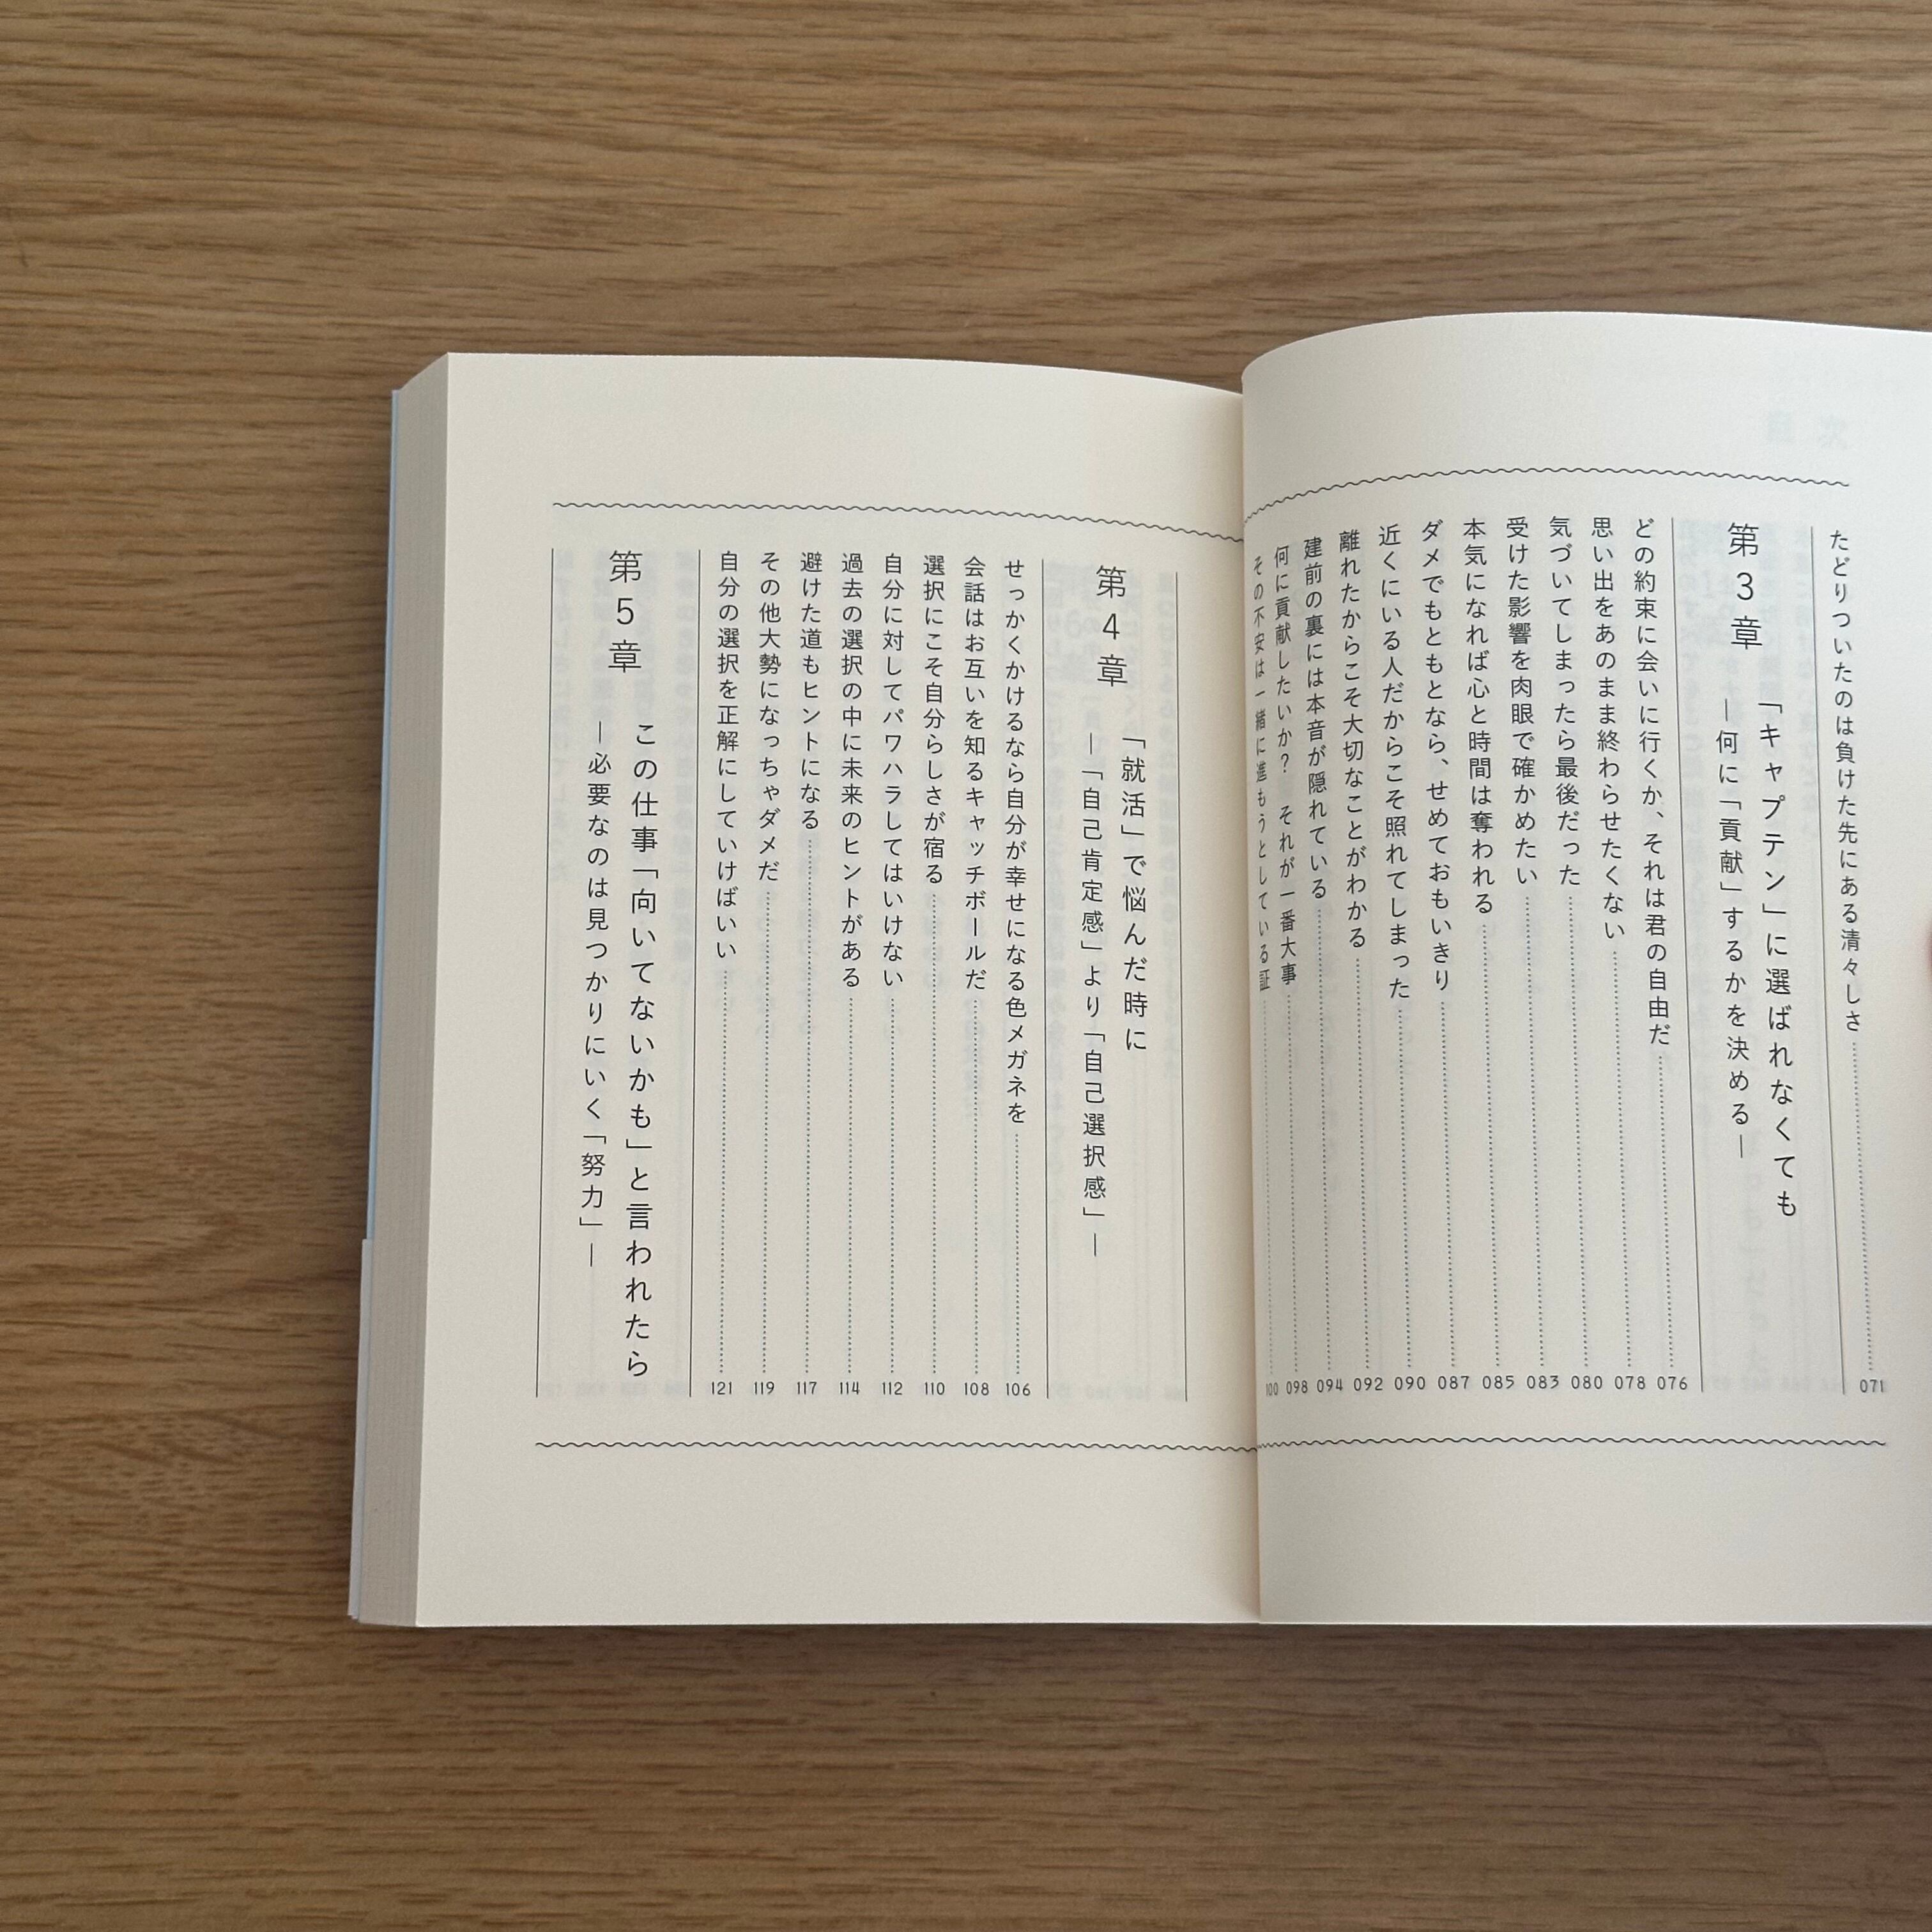 たどりついたのは負けた先にある清々しさ 071
第3章
「キャプテン」に選ばれなくても
―何に「貢献」するかを決める―
どの約束に会いに行くか、それは君の自由だ 076
思い出をあのまま終わらせたくない 078
気づいてしまったら最後だった 080
受けた影響を肉眼で確かめたい 083
本気になれば心と時間は奪われる 085
ダメでもともとなら、せめておもいきり 087
近くにいる人だからこそ照れてしまった 090
離れたからこそ大切なことがわかる 092
建前の裏には本音が隠れている 094
何に貢献したいか? それが一番大事 098
その不安は一緒に進もうとしている証 100
第4章
「就活」で悩んだ時に
―「自己肯定感」より「自己選択感」―
せっかくかけるなら自分が幸せになる色メガネを 106
会話はお互いを知るキャッチボールだ 108
選択にこそ自分らしさが宿る 110
自分に対してパワハラしてはいけない 112
過去の選択の中に未来のヒントがある 114
避けた道もヒントになる 117
その他大勢になっちゃダメだ 119
自分の選択を正解にしていけばいい 121
第5章
この仕事「向いてないかも」と言われたら
―必要なのは見つかりにいく「努力」―